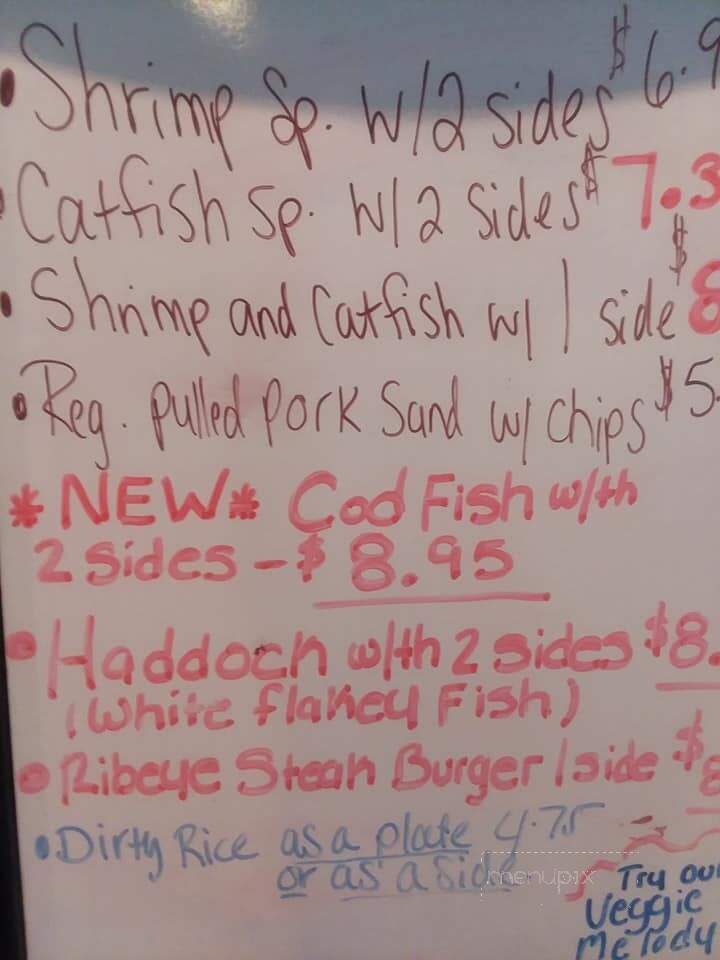 • Shrimp Sp. w/2 sides $6.9
• Catfish Sp. w/2 sides $7.3
• Shrimp and Catfish w/ 1 side $8
• Reg. Pulled Pork Sand w/ Chips $5.
*NEW* Cod Fish w/th
2 sides - $8.95
• Haddoch w/th 2 sides $8.
(White flakey Fish)
• Ribeye Steak Burger 1 side $8
• Dirty Rice as a plate 4.75
or as a Side
menupix
Try our
Veggie
Melody